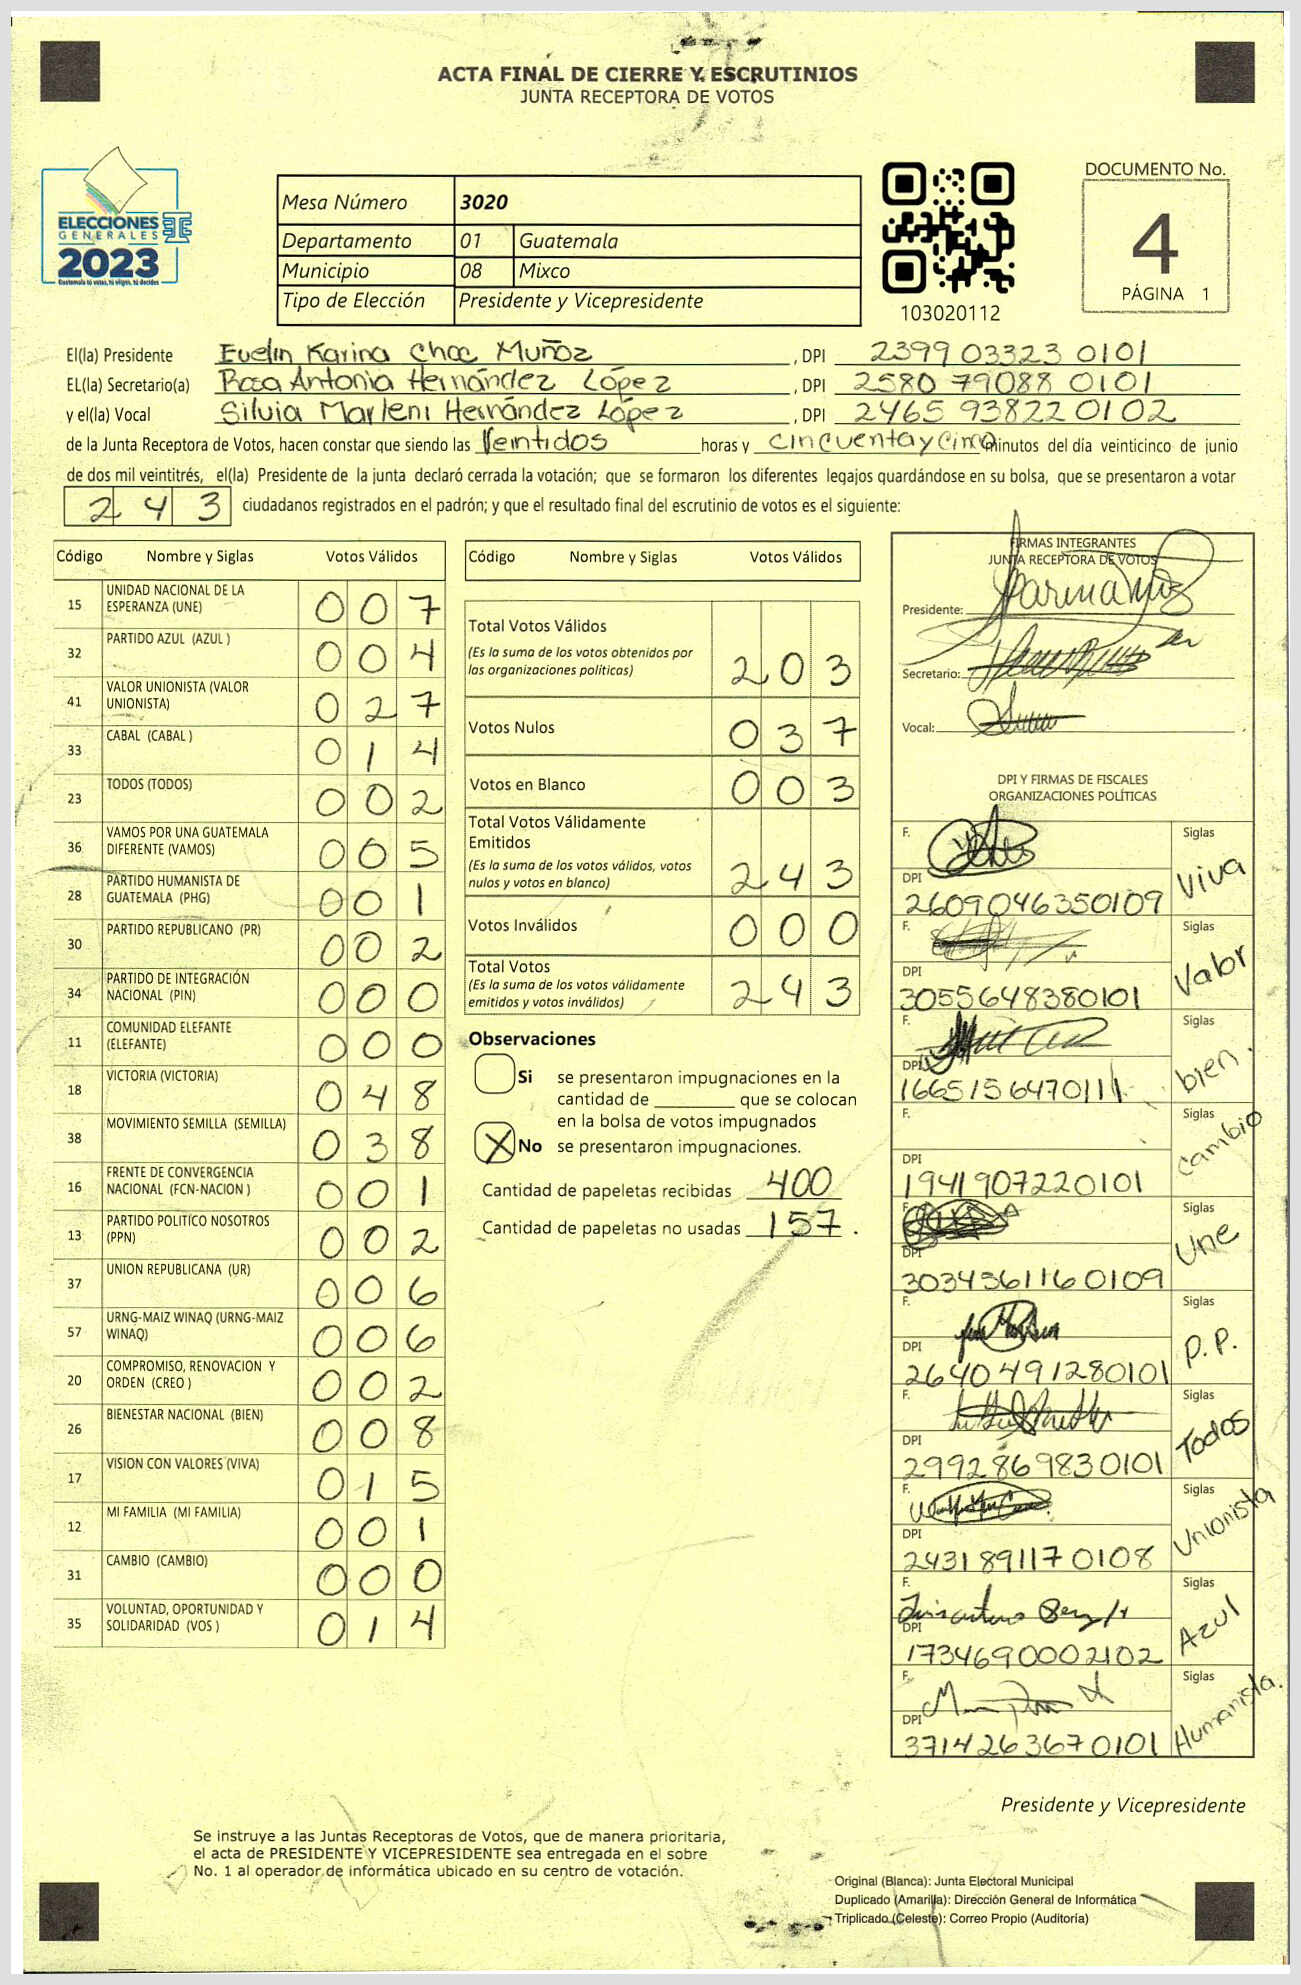 ACTA FINAL DE CIERRE Y ESCRUTINIOS
JUNTA RECEPTORA DE VOTOS
ELECCIONES
GENERALES
2023
Guatemala tú votas, tú eliges, tú decides
Mesa Número 3020
Departamento 01 Guatemala
Municipio 08 Mixco
Tipo de Elección Presidente y Vicepresidente
103020112
DOCUMENTO No.
4
PÁGINA 1
El(la) Presidente Evelin Karina Choc Muñoz , DPI 2399 03323 0101
EL(la) Secretario(a) Rosa Antonia Hernández López , DPI 2580 79088 0101
y el(la) Vocal Silvia Marleni Hernández López , DPI 2465 93822 0102
de la Junta Receptora de Votos, hacen constar que siendo las Veintidos horas y cincuenta y cinco minutos del día veinticinco de junio
de dos mil veintitrés, el(la) Presidente de la junta declaró cerrada la votación; que se formaron los diferentes legajos guardándose en su bolsa, que se presentaron a votar
243 ciudadanos registrados en el padrón; y que el resultado final del escrutinio de votos es el siguiente:
Código Nombre y Siglas Votos Válidos
15 UNIDAD NACIONAL DE LA
ESPERANZA (UNE) 007
32 PARTIDO AZUL (AZUL ) 004
41 VALOR UNIONISTA (VALOR
UNIONISTA) 027
33 CABAL (CABAL ) 014
23 TODOS (TODOS) 002
36 VAMOS POR UNA GUATEMALA
DIFERENTE (VAMOS) 005
28 PARTIDO HUMANISTA DE
GUATEMALA (PHG) 001
30 PARTIDO REPUBLICANO (PR) 002
34 PARTIDO DE INTEGRACIÓN
NACIONAL (PIN) 000
11 COMUNIDAD ELEFANTE
(ELEFANTE) 000
18 VICTORIA (VICTORIA) 048
38 MOVIMIENTO SEMILLA (SEMILLA) 038
16 FRENTE DE CONVERGENCIA
NACIONAL (FCN-NACION ) 001
13 PARTIDO POLITICO NOSOTROS
(PPN) 002
37 UNION REPUBLICANA (UR) 006
57 URNG-MAIZ WINAQ (URNG-MAIZ
WINAQ) 006
20 COMPROMISO, RENOVACION Y
ORDEN (CREO ) 002
26 BIENESTAR NACIONAL (BIEN) 008
17 VISION CON VALORES (VIVA) 015
12 MI FAMILIA (MI FAMILIA) 001
31 CAMBIO (CAMBIO) 000
35 VOLUNTAD, OPORTUNIDAD Y
SOLIDARIDAD (VOS ) 014
Código Nombre y Siglas Votos Válidos
Total Votos Válidos
(Es la suma de los votos obtenidos por
las organizaciones políticas) 203
Votos Nulos 037
Votos en Blanco 003
Total Votos Válidamente
Emitidos
(Es la suma de los votos válidos, votos
nulos y votos en blanco) 243
Votos Inválidos 000
Total Votos
(Es la suma de los votos válidamente
emitidos y votos inválidos) 243
Observaciones
Si se presentaron impugnaciones en la
cantidad de ________ que se colocan
en la bolsa de votos impugnados
X No se presentaron impugnaciones.
Cantidad de papeletas recibidas 400
Cantidad de papeletas no usadas 157 .
FIRMAS INTEGRANTES
JUNTA RECEPTORA DE VOTOS
Presidente:
Secretario:
Vocal:
DPI Y FIRMAS DE FISCALES
ORGANIZACIONES POLÍTICAS
F. Siglas
DPI Viva
2609046350109
F. Siglas
DPI Valor
3055648380101
F. Siglas
DPI bien.
1665156470111
F. Siglas
DPI cambio
1941907220101
F. Siglas
DPI Une
3034561160109
F. Siglas
DPI P.P.
2640491280101
F. Siglas
DPI Todos
2992869830101
F. Siglas
DPI Unionista
2431891170108
F. Siglas
DPI Azul
1734690002102
F. Siglas
DPI Humanista.
3714263670101
Presidente y Vicepresidente
Se instruye a las Juntas Receptoras de Votos, que de manera prioritaria,
el acta de PRESIDENTE Y VICEPRESIDENTE sea entregada en el sobre
No. 1 al operador de informática ubicado en su centro de votación.
Original (Blanca): Junta Electoral Municipal
Duplicado (Amarilla): Dirección General de Informática
Triplicado (Celeste): Correo Propio (Auditoría)